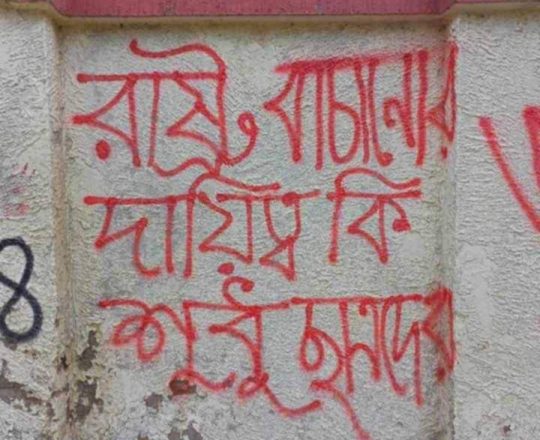 রাষ্ট্র বাচানোর
দায়িত্ব কি
শুধু ছাত্রদের